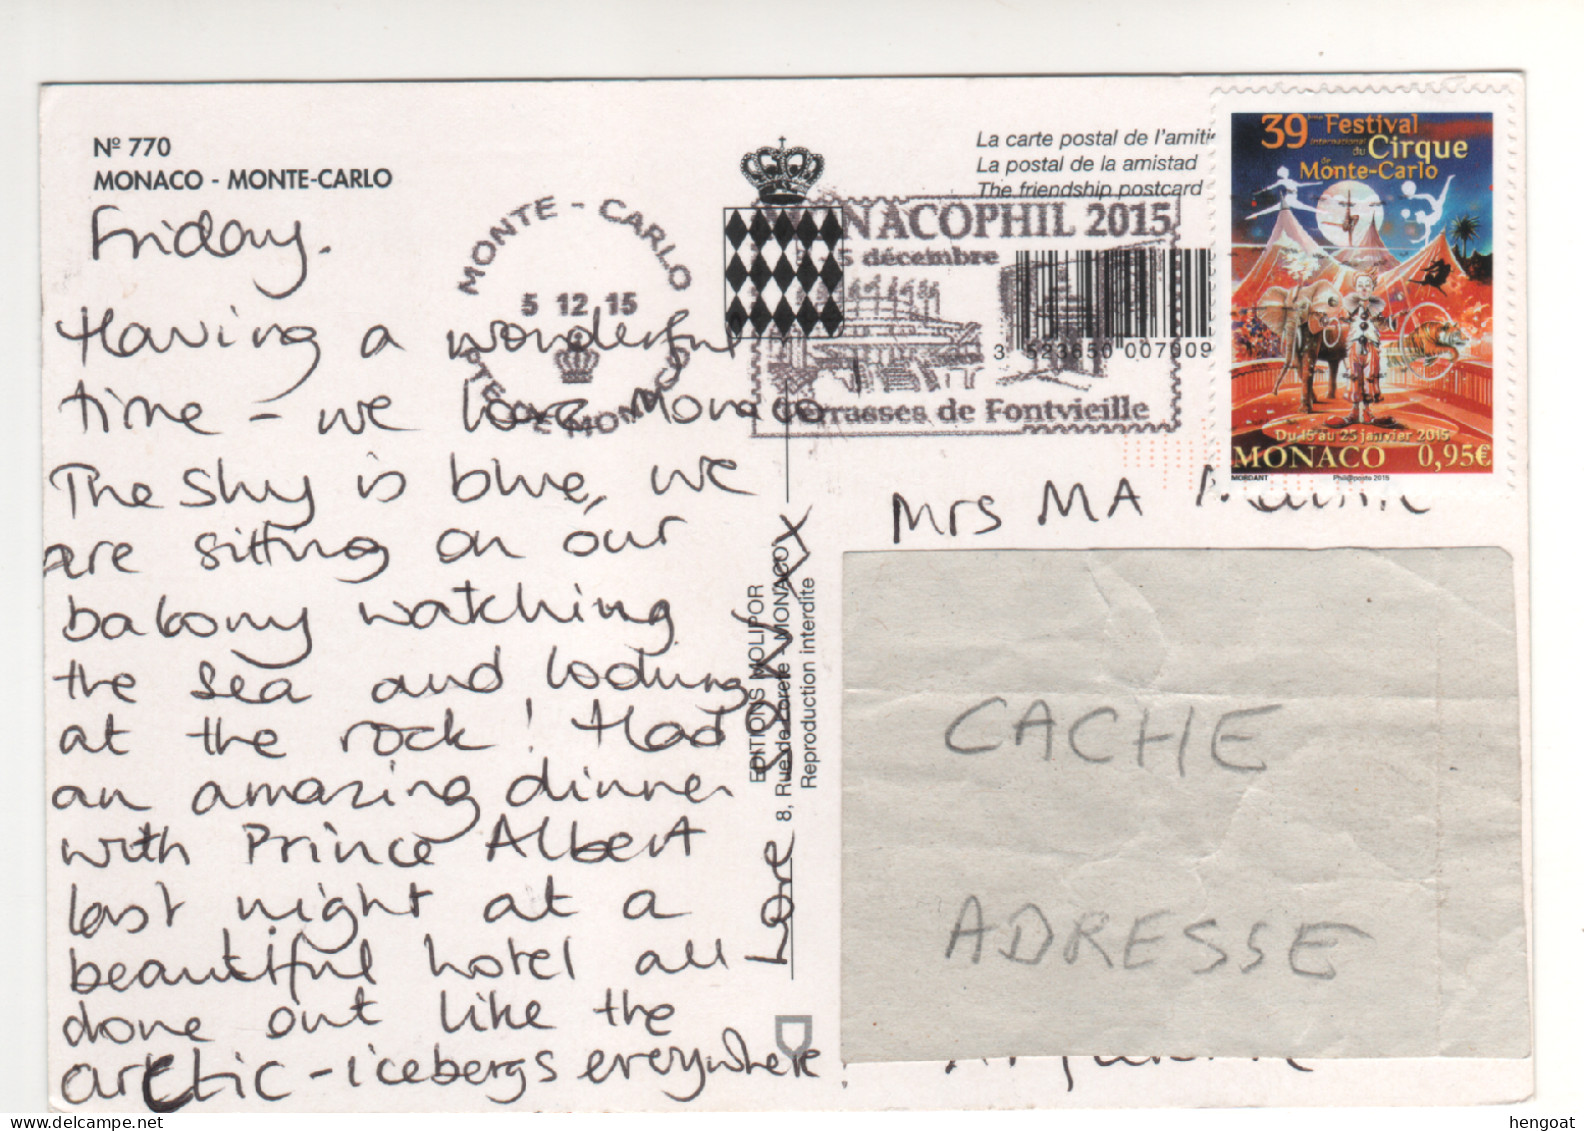 Nº 770
MONACO - MONTE-CARLO
Friday.
Having a wonderful
time - we love Monaco!
The sky is blue, we
are sitting on our
balcony watching
the sea and looking
at the rock! Had
an amazing dinner
with Prince Albert
last night at a
beautiful hotel all
done out like the
arctic - icebergs everywhere.
Love
EDITIONS MOLIPOR
8, Rue de Lorete - MONACO
Reproduction interdite
MONTE - CARLO
5 12 15
PTE DE MONACO
La carte postal de l'amiti
La postal de la amistad
The friendship postcard
NACOPHIL 2015
5 décembre
Terrasses de Fontvieille
3 523650 007909
39ème Festival
International du Cirque
de Monte-Carlo
Du 15 au 25 janvier 2015
MONACO 0,95€
MORDANT Phil@poste 2015
Mrs MA
CACHE
ADRESSE
hengoat